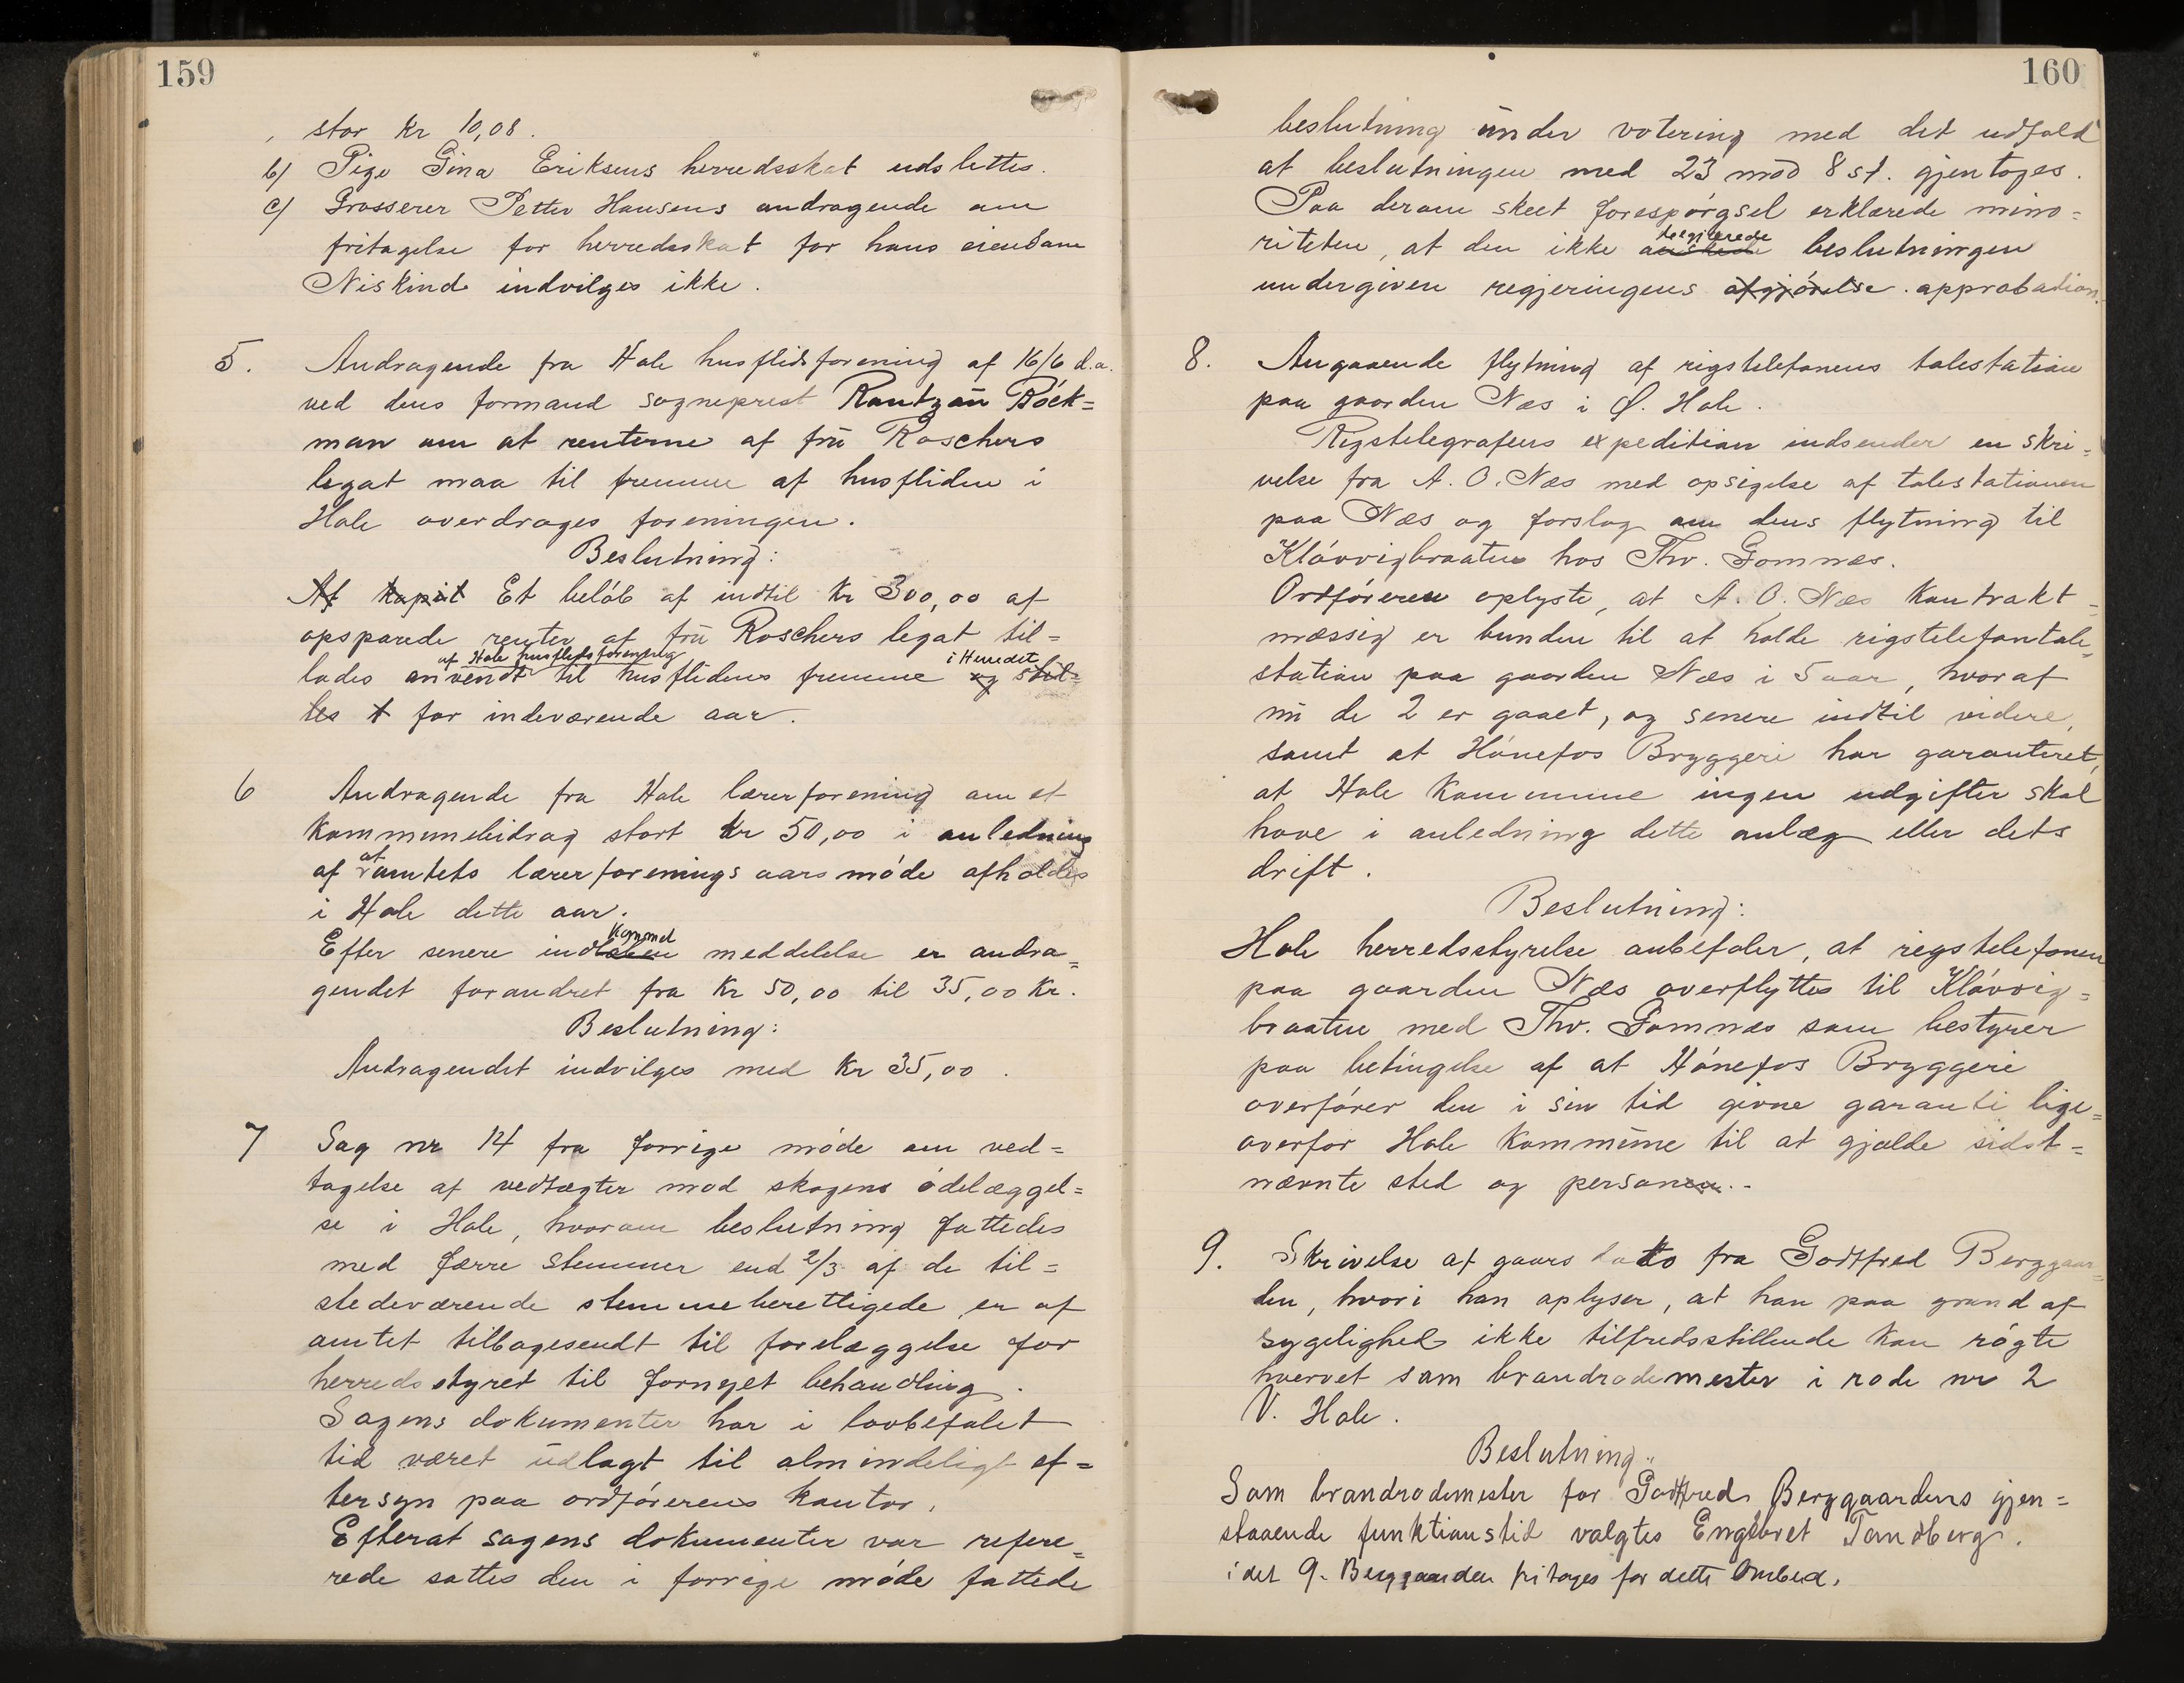 159
stor Kr 10,08.
b/ Pige Gina Eriksens herredsskat udslettes.
c/ Grosserer Petter Hansens andragende om
fritagelse for herredsskat for hans eiendom
Niskinds indvilges ikke.
5. Andragende fra Hole husflidsforening af 16/6 d.a.
ved dens formand sogneprest Rantzau Böck=
man om at renterne af fru Roschers
legat maa til fremme af husfliden i
Hole overdrages foreningen.
Beslutning:
Af kapit Et beløb af indtil Kr 300,00 af
opsparede renter af fru Roschers legat til=
af Hole husflidsforening i Herredet
lades anvendt til husflidens fremme og stil=
les t for indeværende aar.
6 Andragende fra Hole lærerforening om et
Kommunebidrag stort Kr 50,00 i anledning
at
af amtets lærerforenings aarsmøde afholdes
i Hole dette aar.
kommet
Efter senere indløben meddelelse er andra=
gendet forandret fra Kr 50,00 til 35,00 Kr.
Beslutning:
Andragendet indvilges med Kr 35,00.
7 Sag nr 14 fra forrige møde om ved=
tagelse af vedtægter mod skogens ødelæggel=
se i Hole, hvorom beslutning fattedes
med færre stemmer end 2/3 af de til=
stedeværende stemmeberettigede er af
amtet tilbagesendt til forelæggelse for
herredsstyret til fornyet behandling.
Sagens dokumenter har i lovbefalet
tid været udlagt til almindeligt ef=
tersyn paa ordførerens Kontor.
Efterat sagens dokumenter var refere=
rede sattes den i forrige møde fattede
160
beslutning under votering med det udfald
at beslutningen med 23 mod 8 st. gjentoges.
Paa derom skeet forespørgsel erklærede mino=
riteten, at den ikke beslutningen
undergiven regjeringens afgjørelse. approbation.
8. Angaaende flytning af rigstelefonens talestation
paa gaarden Næs i Ø. Hole.
Rigstelegrafens expedition indsender en skri=
velse fra A. O. Næs med opsigelse af talestationen
paa Næs og forslag om dens flytning til
Kløvvigbraaten hos Thv. Gomnæs.
Ordføreren oplyste, at A. O. Næs Kontrakt=
mæssig er bunden til at holde rigstelefontale=
station paa gaarden Næs i 5 aar, hvoraf
nu de 2 er gaaet, og senere indtil videre,
samt at Hønefos Bryggeri har garanteret,
at Hole Kommune ingen udgifter skal
have i anledning dette anlæg eller dets
drift.
Beslutning:
Hole herredsstyrelse anbefaler, at rigstelefonen
paa gaarden Næs overflyttes til Kløvvig=
braaten med Thv. Gomnæs som bestyrer
paa betingelse af at Hønefos Bryggeri
overfører den i sin tid givne garanti lige=
overfor Hole Kommune til at gjælde sidst=
nævnte sted og personen.
9. Skrivelse af gaars dato fra Godtfred Berggaar=
den, hvori han oplyser, at han paa grund af
sygelighed ikke tilfredsstillende kan røgte
hvervet som brandrodemester i rode nr 2
V. Hole.
Beslutning:
Som brandrodemester for Godtfred Berggaardens gjen=
staaende funktionstid valgtes Engebret Tandberg.
idet G. Berggaarden fritages for dette Ombud.